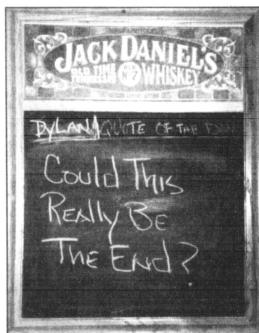 JACK DANIEL'S
OLD TIME No. 7 WHISKEY
DYLAN QUOTE OF THE DAY
Could This
Really Be
The End?